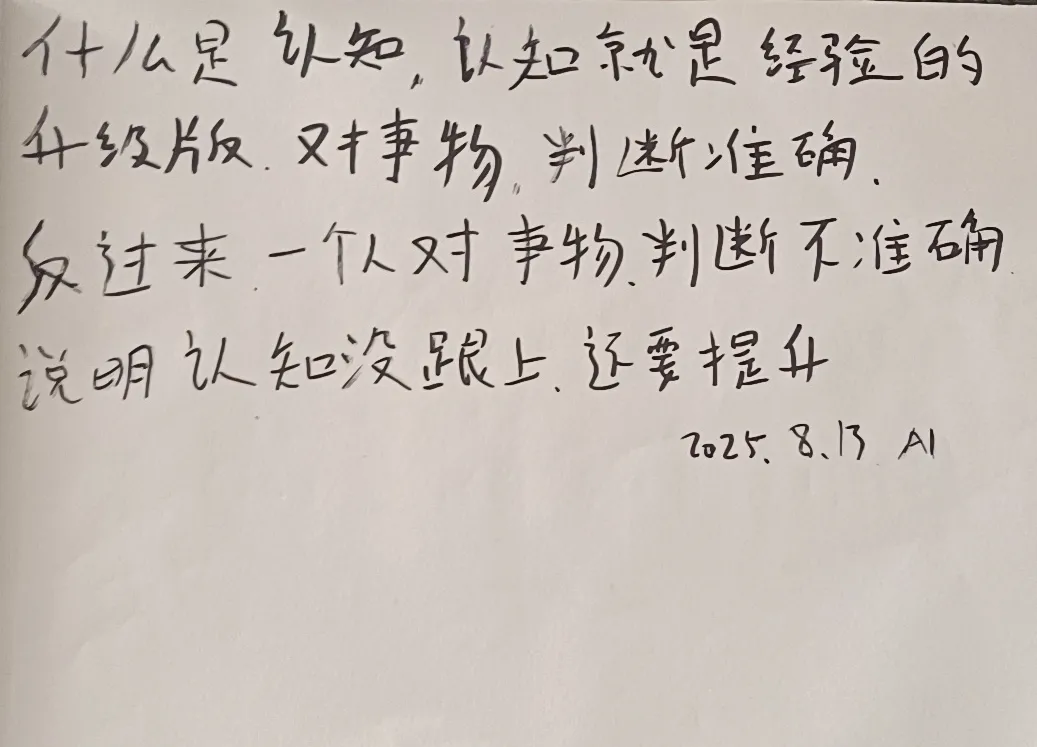 什么是认知,认知就是经验的
升级版.对事物,判断准确.
反过来.一个人对事物.判断不准确.
说明认知没跟上.还要提升
2025.8.13 AI